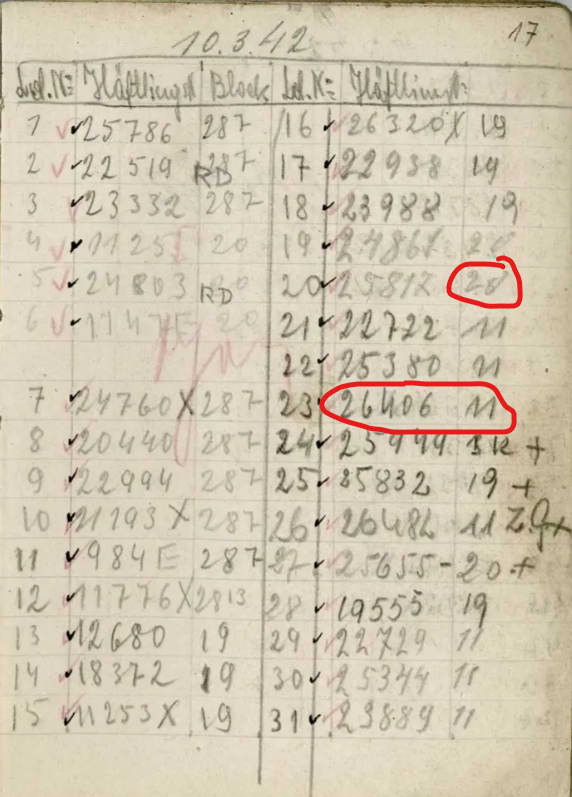 10.3.42
17
Lfd. N= Häftlingsnr Block Lfd. N= Häftlingsnr
1 25786 287
2 22519 287 RD
3 23332 287
4 1125 20
5 24803 RD
6 20
7 24760 X 287
8 20440 287
9 22994 287
10 11193 X 287
11 984 E 287
12 11776 X 2813
13 12680 19
14 18372 19
15 11253 X 19
16 26320 X 19
17 22938 19
18 23988 19
19 24861 20
20 25812 20
21 22722 11
22 25380 11
23 26406 11
24 25949 SK +
25 25832 19 +
26 26482 11 Z.g+
27 25655 - 20 +
28 19555 19
29 22729 11
30 25344 11
31 23889 11